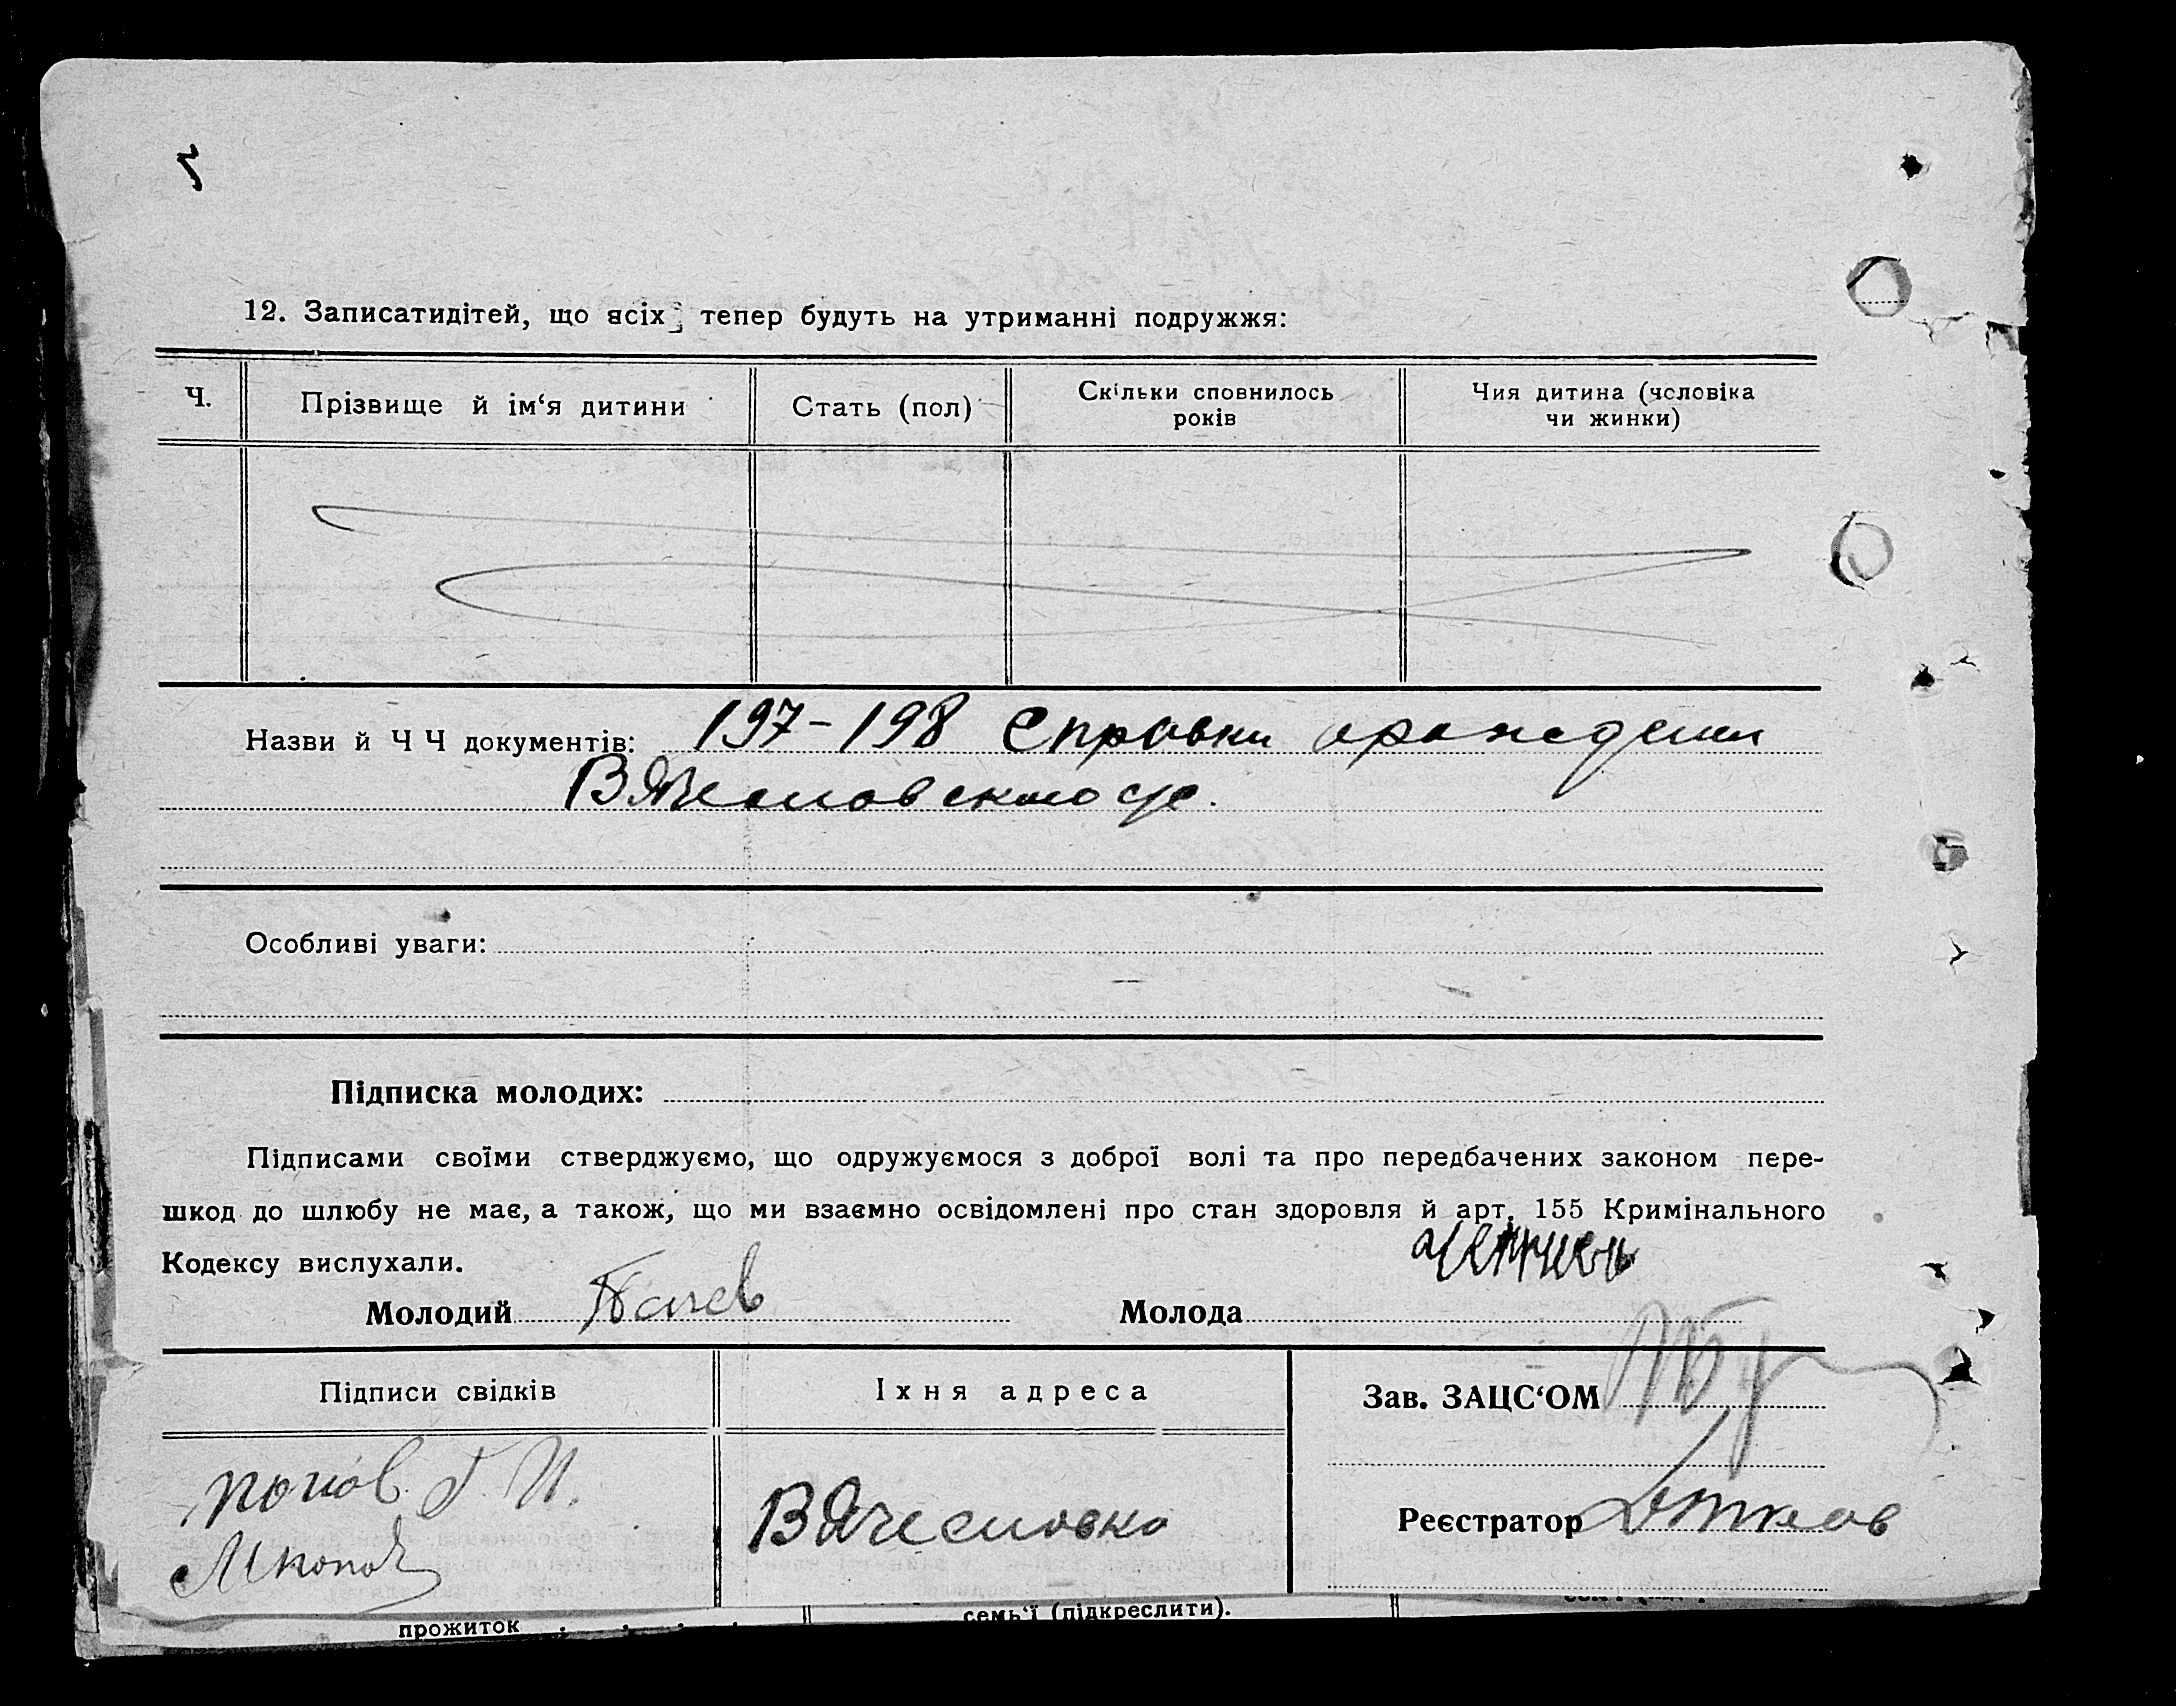 12. Записатидітей, що всіх тепер будуть на утриманні подружжя:
Ч.
Прізвище й ім‘я дитини
Стать (пол)
Скільки сповнилось
років
Чия дитина (чоловіка
чи жинки)
Назви й Ч Ч документів: 197-198 Справки орождении
Вячесловского с/с.
Особливі уваги:
Підписка молодих:
Підписами своїми стверджуємо, що одружуємося з доброї волі та про передбачених законом пере-
шкод до шлюбу не має, а також, що ми взаємно освідомлені про стан здоровля й арт. 155 Кримінального
Кодексу вислухали.
Молодий
Молода
Підписи свідків
Іхня адреса
Зав. ЗАЦС‘ОМ
Попов Г И.
Вячесловка
Реєстратор
прожиток
семь‘ї (підкреслити).